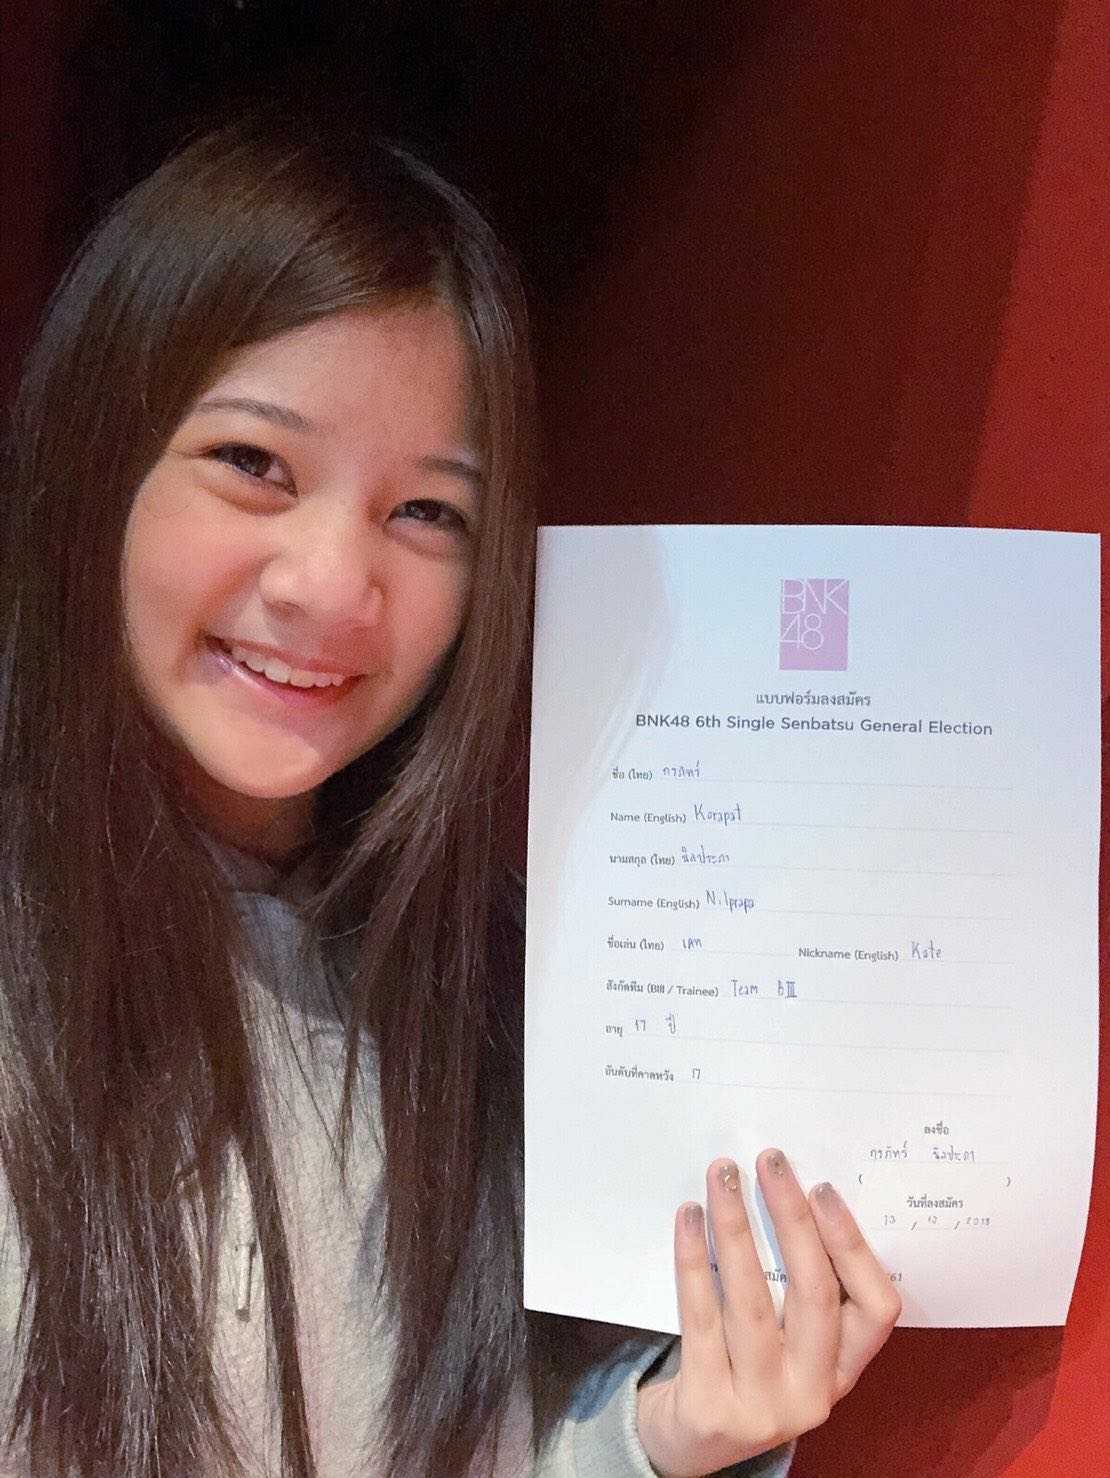 BNK
48
แบบฟอร์มลงสมัคร
BNK48 6th Single Senbatsu General Election
ชื่อ (ไทย) กรภัทร์
Name (English) Korapat
นามสกุล (ไทย) นิลประภา
Surname (English) Nilprapa
ชื่อเล่น (ไทย) เคท Nickname (English) Kate
สังกัดทีม (BIII / Trainee) Team BIII
อายุ 17 ปี
อันดับที่คาดหวัง 17
ลงชื่อ
กรภัทร์ นิลประภา
( )
วันที่ลงสมัคร
13 / 10 / 2018